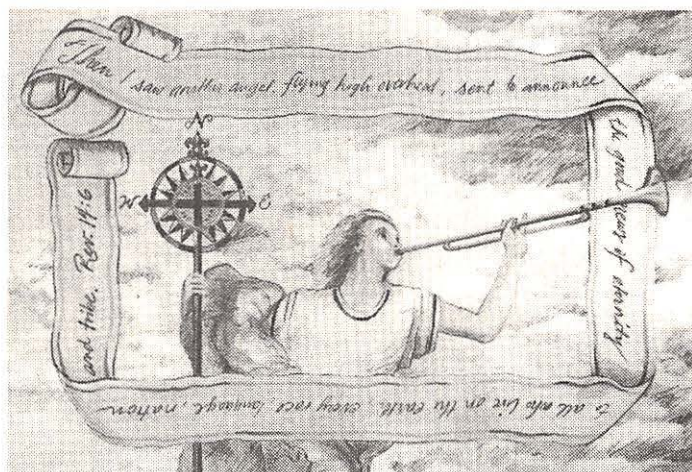 Then I saw another angel, flying high overhead, sent to announce
the good news of eternity
to all who live on the earth, every race, language, nation
and tribe. Rev. 14:6
N
W